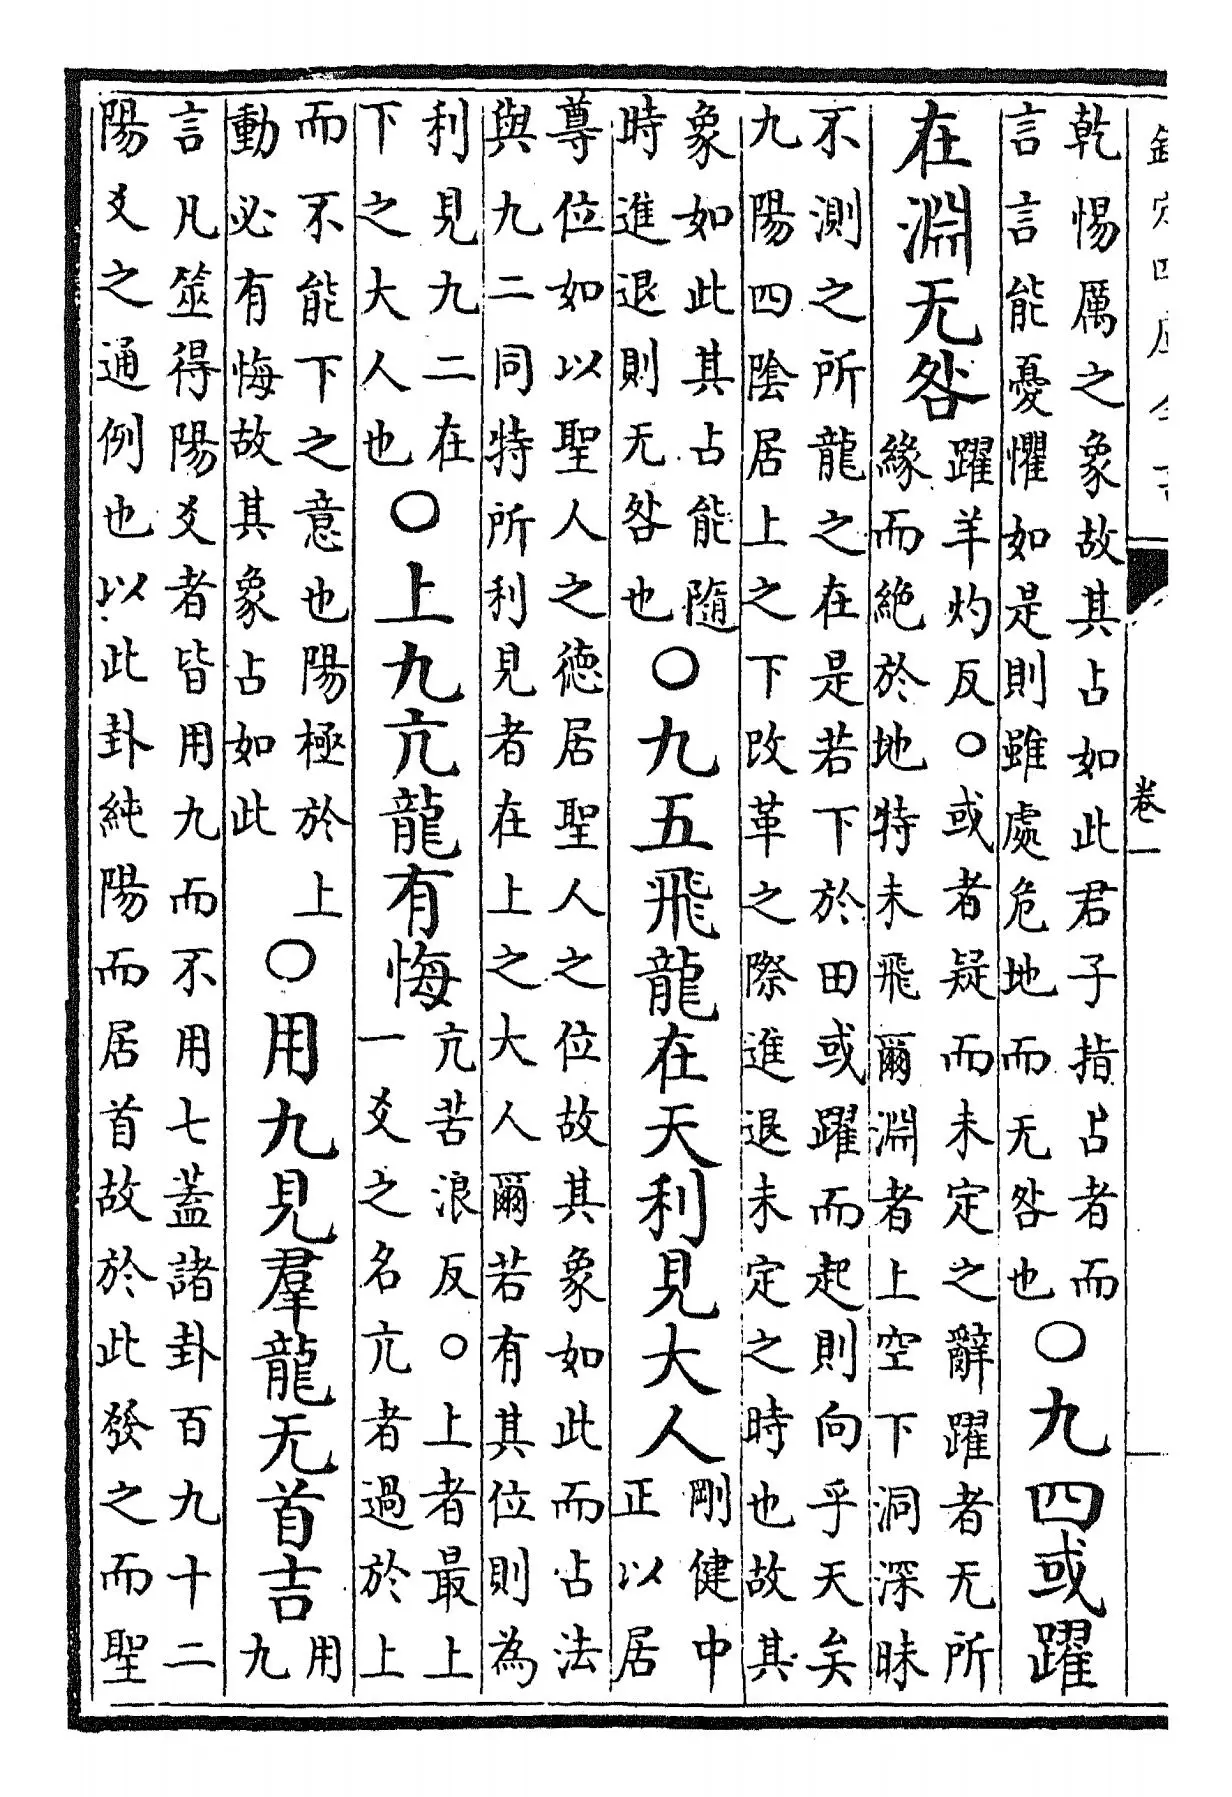 欽定四庫全書
卷一
乾惕厲之象故其占如此君子指占者而
言言能憂懼如是則雖處危地而无咎也
○九四或躍
在淵无咎
躍羊灼反○或者疑而未定之辭躍者无所
緣而絶於地特未飛爾淵者上空下洞深昧
不測之所龍之在是若下於田或躍而起則向乎天矣
九陽四陰居上之下改革之際進退未定之時也故其
象如此其占能隨
時進退則无咎也
○九五飛龍在天利見大人
剛健中
正以居
尊位如以聖人之徳居聖人之位故其象如此而占法
與九二同特所利見者在上之大人爾若有其位則為
利見九二在
下之大人也
○上九亢龍有悔
亢苦浪反○上者最上
一爻之名亢者過於上
而不能下之意也陽極於上
動必有悔故其象占如此
○用九見羣龍无首吉
用
九
言凡筮得陽爻者皆用九而不用七蓋諸卦百九十二
陽爻之通例也以此卦純陽而居首故於此發之而聖